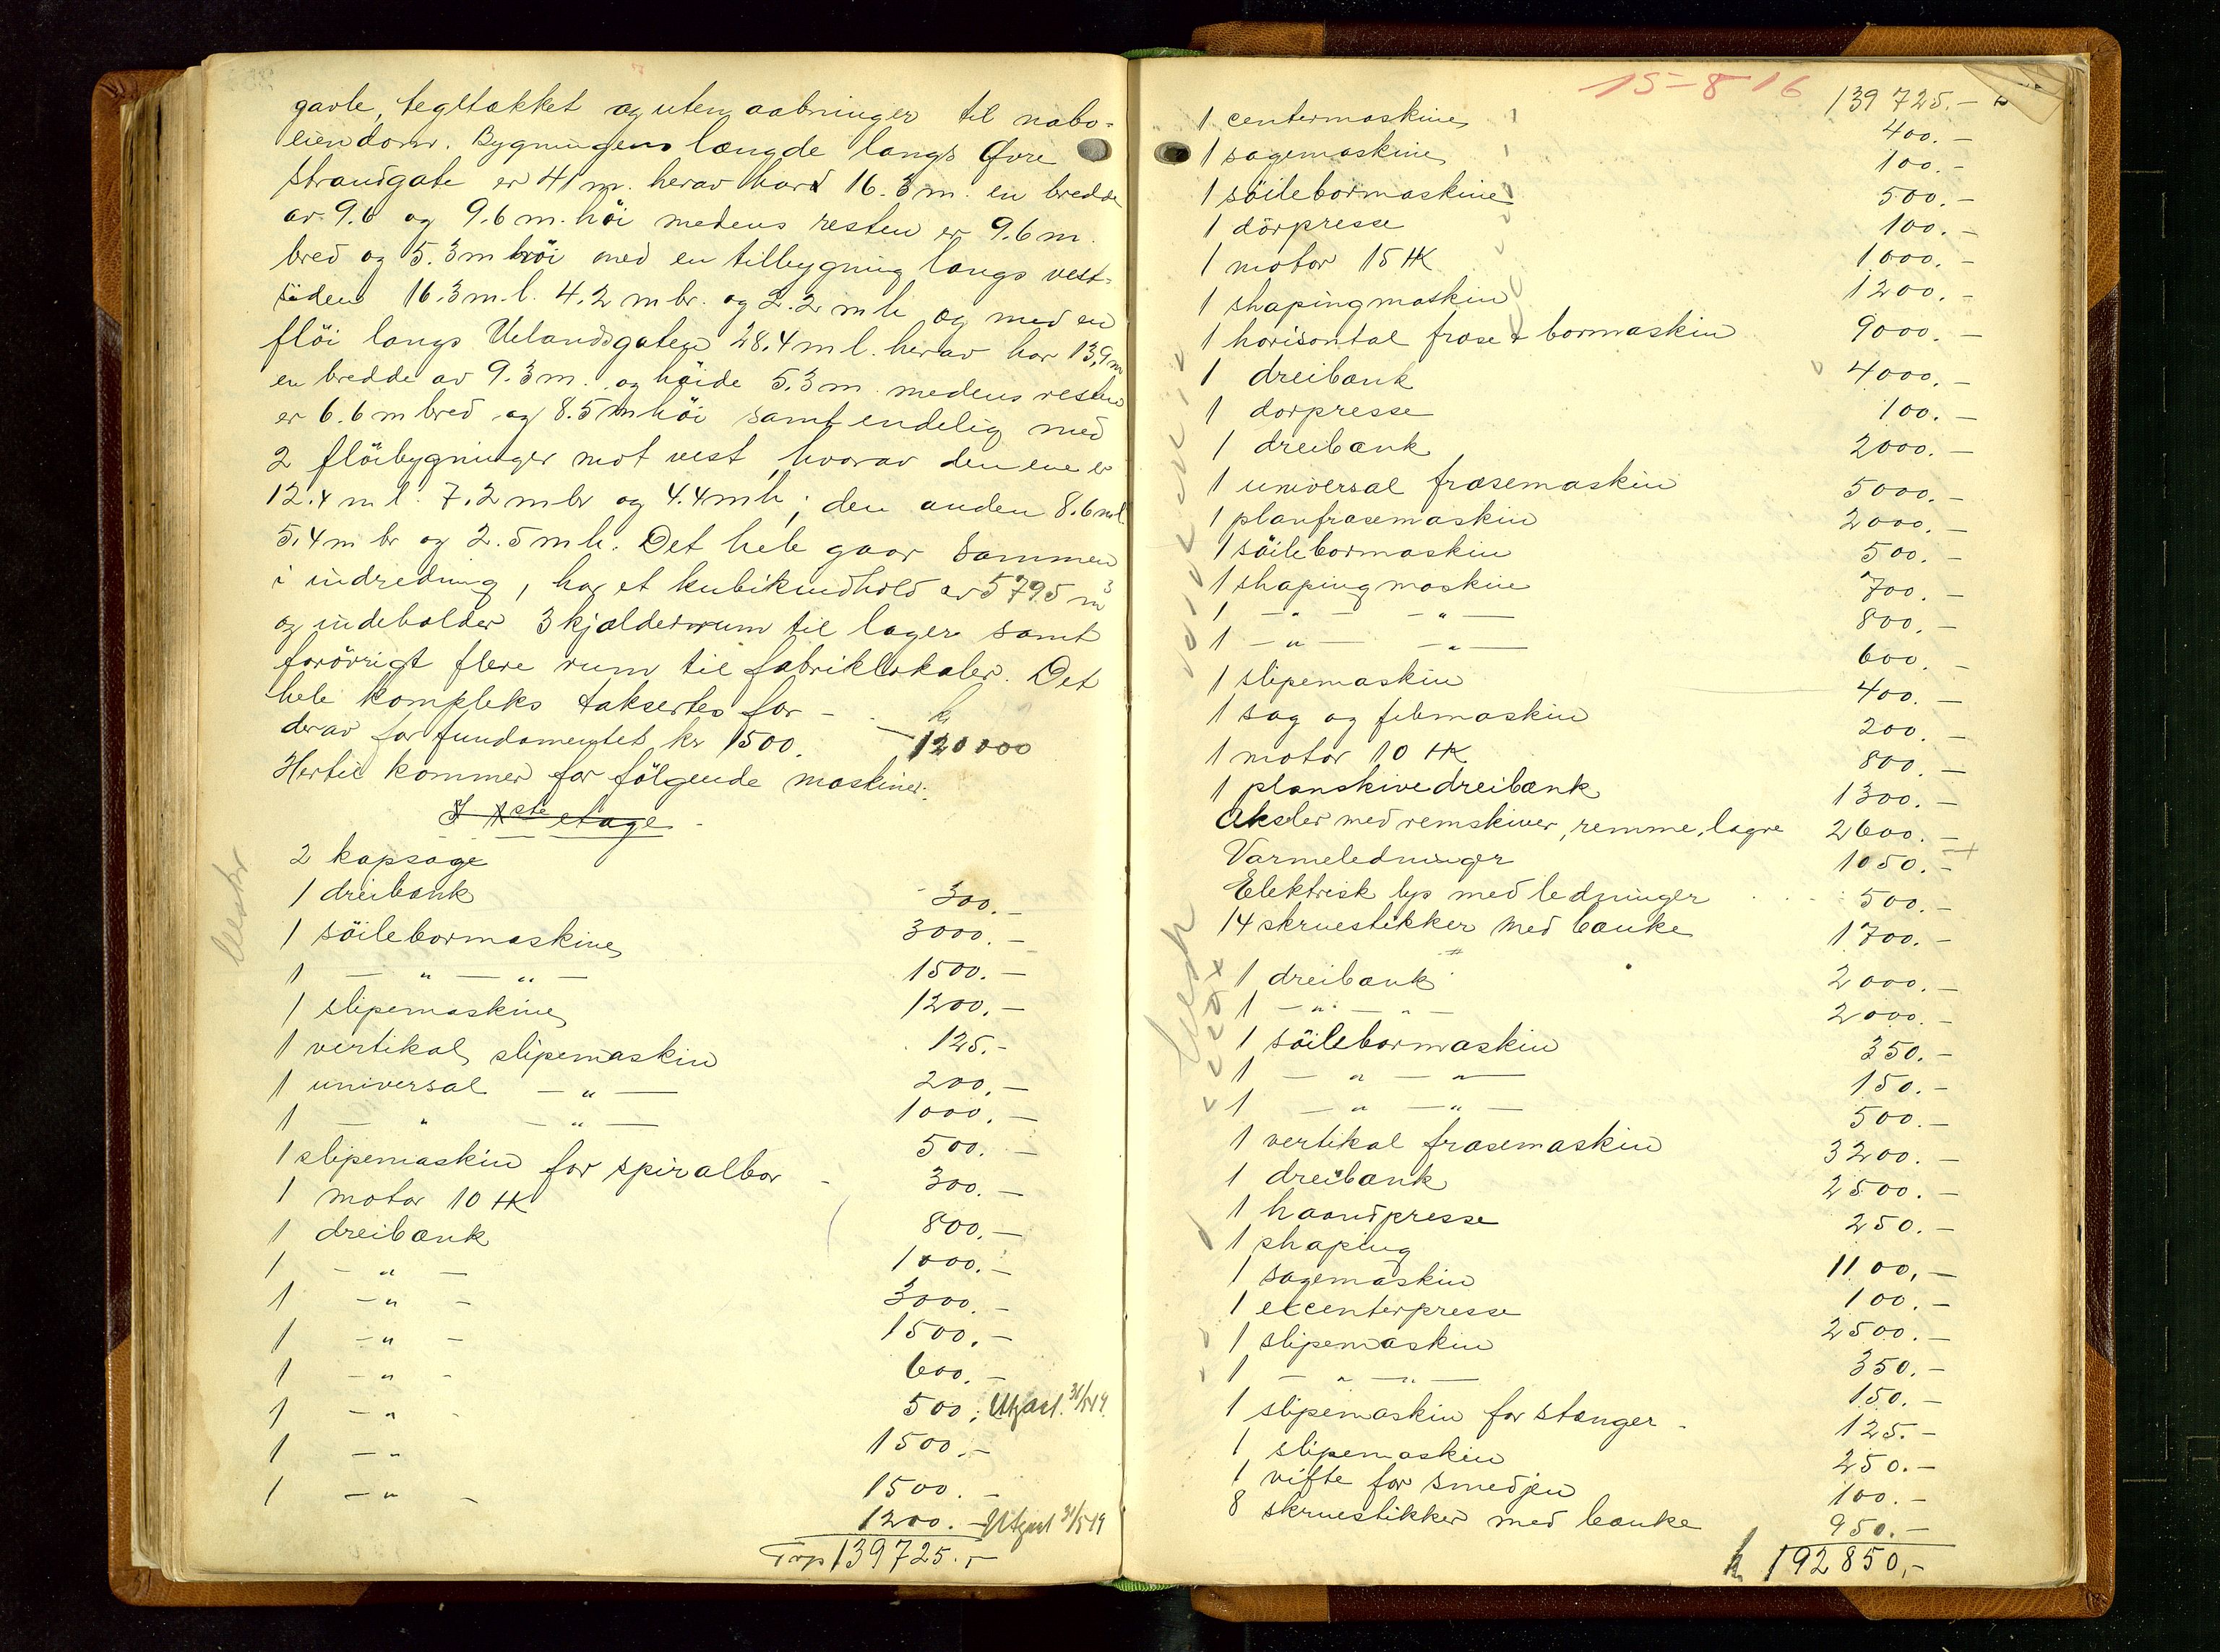 gavle, tegltækket og uten aabninger til nabo-
eiendom. Bygningens længde langs Øvre
Strandgate er 41 m. herav har 16.3 m. en bredde
av 9.6 og 9.6 m. höi medens resten er 9.6 m.
bred og 5.3 m höi med en tilbygning langs vest-
siden 16.3 m.l. 4.2 m br. og 2.2 m h og med en
flöi langs Uelandsgaten 28.4 m l. herav har 13,9 m
en bredde av 9.3 m. og höide 5.3 m medens resten
er 6.6 m bred og 8.5 m höi samt endelig med
2 flöibygninger mot vest, hvorav den ene er
12.4 m l. 7.2 m br og 4.4 m h, den anden 8.6 m l
5.4 m br og 2.5 m h. Det hele gaar sammen
i indredning, har et kubikindhold av 5795 m³
og indeholder 3 kjælderrum til lager samt
forövrigt flere rum til fabriklokaler. Det
hele kompleks taksertes for - kr 120 000
derav for fundamentet kr 1500.
Hertil kommer for fölgende maskiner:
I 1ste etage
2 kapsage 300.-
1 dreibænk 3000.-
1 söilebormaskine 1500.-
1 - " - " - 1200.-
1 slipemaskine 125.-
1 vertikal slipemaskin 200.-
1 universal - " - 1000.-
1 - " - " - 500.-
1 slipemaskin for spiralbor - 300.-
1 motor 10 HK 800.-
1 dreibænk 1000.-
1 - " - 3000.-
1 - " - 1500.-
1 - " - 600.-
1 - " - 500.- Utgaat 31/5 19
1 - " - 1500.-
1 - " 1500.-
1 - " - 1200.- Utgaat 31/5 19
Trp 139725.-
15-8-16
139 725.-
1 centermaskine 400.-
1 sagemaskine 100.-
1 söilebormaskine 500.-
1 dörpresse 100.-
1 motor 15 HK 1000.-
1 shapingmaskin 1200.-
1 horisontal fræse & bormaskin 9000.-
1 dreibænk 4000.-
1 dorpresse 100.-
1 dreibænk 2000.-
1 universal fræsemaskin 5000.-
1 planfræsemaskin 2000.-
1 söilebormaskin 500.-
1 shapingmaskin 700.-
1 - " - " - 800.-
1 - " - " - 600.-
1 slipemaskin 400.-
1 sag og filmaskin 200.-
1 motor 10 HK 800.-
1 planskivedreibænk 1300.-
Aksler med remskiver, remme, lagre 2600.-
Varmeledninger 1050.-
Elektrisk lys med ledninger 500.-
14 skruestikker med bænke 1700.-
1 dreibænk 2000.-
1 - " - " - 2000.-
1 söilebormaskin 350.-
1 - " - " - 150.-
1 - " - " - 500.-
1 vertikal fræsemaskin 3200.-
1 dreibænk 2500.-
1 haandpresse 250.-
1 shaping 1100.-
1 sagemaskin 100.-
1 excenterpresse 2500.-
1 slipemaskin 350.-
1 - " - " - 150.-
1 slipemaskin for stænger - 125.-
1 slipemaskin 250.-
1 vifte for smedjen 100.-
8 skruestikker med bænke 950.-
kr 192850,-